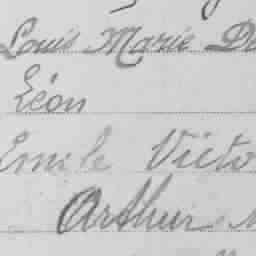 Louis Marie De
Léon
Emile Victo
Arthur